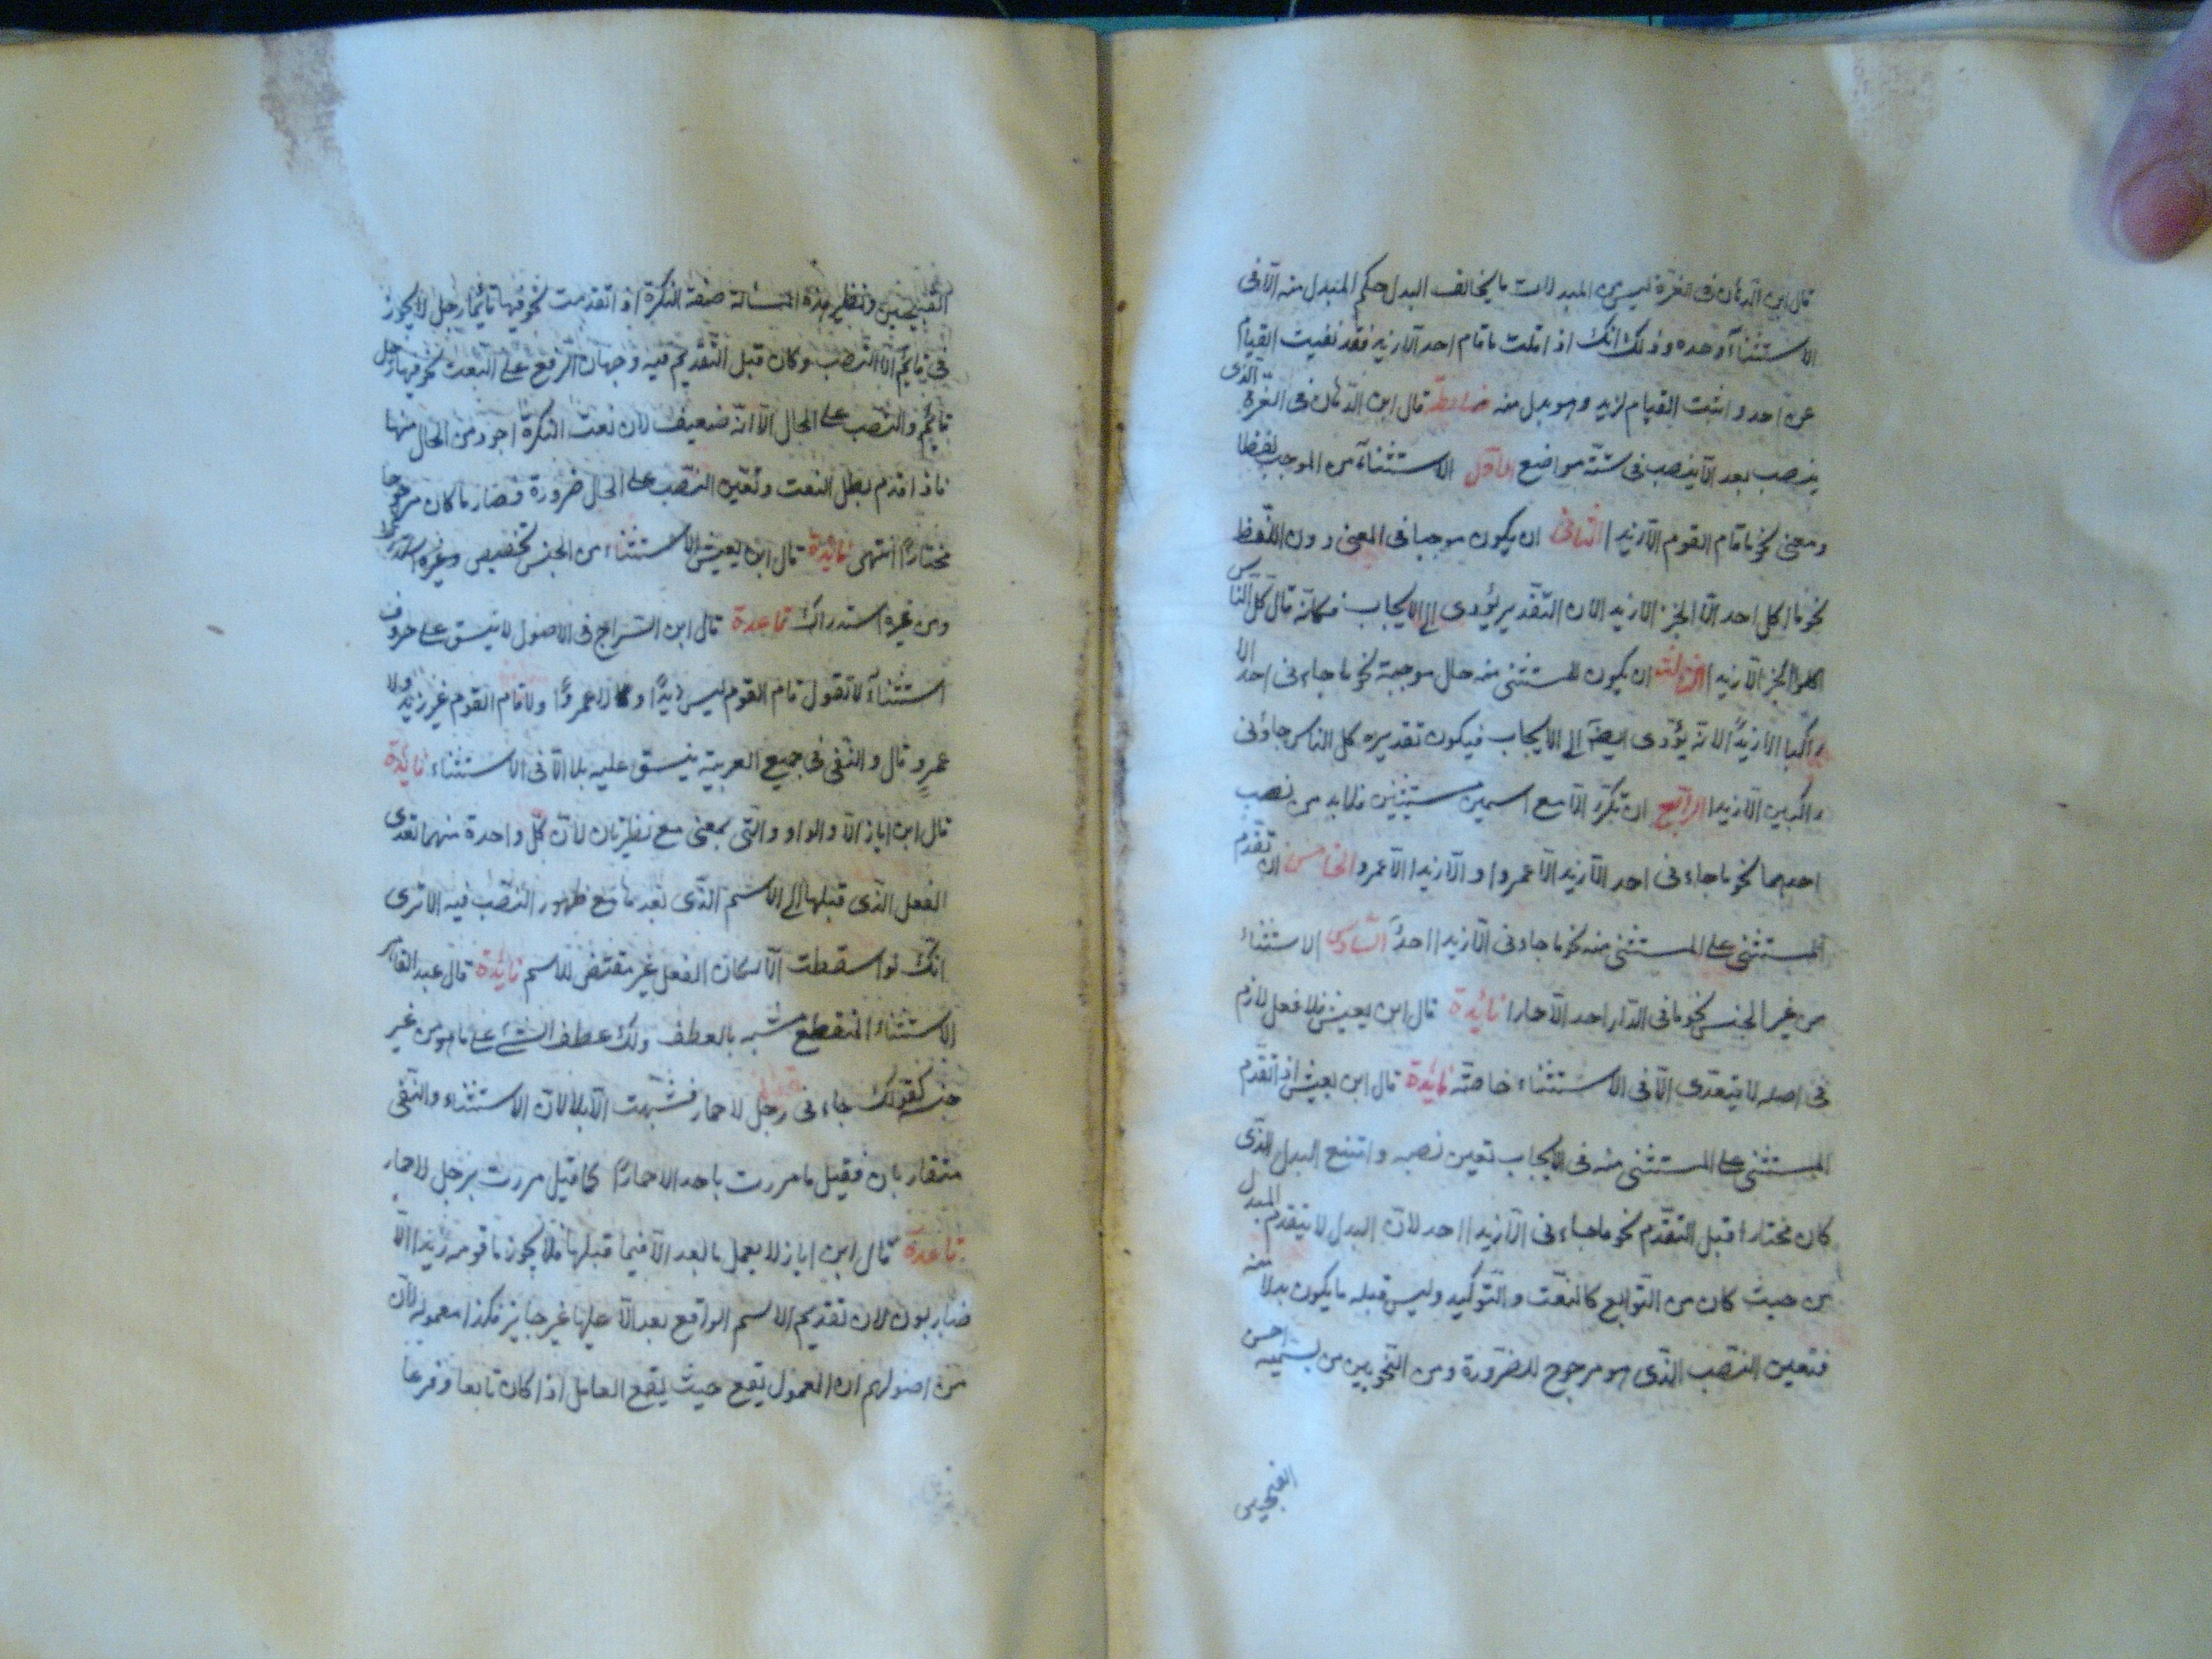 قال ابن الدهان فى الغرة ليس من المبدلات ما يخالف البدل حكم المبدل منه الّا فى
الاستثناء وحده وذلك انك اذا قلت ما قام احد الا زيد فقد نفيت القيام
عن احد واثبت القيام لزيد وهو بدل منه ضابط قال ابن الدهان فى الغرة الذى
ينصب بعد الّا ينصب فى ستة مواضع الاول الاستثناء من الموجب لفظا
ومعنى نحو ما قام القوم الّا زيدا الثانى ان يكون موجبا فى المعنى دون اللفظ
نحو ما اكل احد الّا الخبز الا زيد الان التقدير يؤدى الى الايجاب فكانّه قال كلّ الناس
اكلوا الخبز الّا زيدا الثالث ان يكون للمستثنى منه حال موجبة نحو ما جاءنى احد الا
راكبا الا زيدًا لانه يؤدى ايضا الى الايجاب فيكون تقديره كل الناس جاؤنى
راكبين الّا زيدا الرابع ان تكرّر الّا مع اسمين مستثنين فلا بد من نصب
احدهما نحو ما جاءنى احد الّا زيد الّا عمروا والّا زيدا الّا عمرو الخامس ان تقدم
المستثنى على المستثنى منه نحو ما جاءنى الّا زيدا احدٌ السادس الاستثناء
من غير الجنس نحو ما فى الدار احد الّا حمارا فائدة قال ابن يعيش فلا فعل لازم
فى اصله لا يتعدى الّا فى الاستثناء خاصّة فائدة قال ابن يعيش اذ اتقدم
المستثنى على المستثنى منه فى الايجاب تعين نصبه وامتنع البدل الذى
كان مختارا قبل التقدّم نحو ما جاءنى الّا زيدا احد لانّ البدل لا يتقدم المبدل
من حيث كان من التوابع كالنعت والتوكيد وليس قبله ما يكون بدلا منه
فتعين النصب الذى هو مرجوح للضرورة ومن النحويين من يسميه احسن
القبيحين
القبيحين ونظير هذه المسالة صفة النكرة اذا تقدمت نحو فيها قائما رجل لا يجوز
فى قائم الّا النصب وكان قبل التقديم فيه وجهان الرفع على النعت نحو فيها رجل
قائم والنصب على الحال الّا انه ضعيف لان نعت النكرة اجود من الحال منها
فاذا قدم بطل النعت وتعين النصب على الحال ضرورة فصار ما كان مرجوحا
مختارا انتهى فائدة قال ابن يعيش الاستثناء من الجنس تخصيص وغيره استدراك
ومن غيره استدراك قاعدة قال ابن السراج فى الاصول لا ينسق على حروف
استثناء لا تقول قام القوم ليس زيدًا ولا عمروًا ولا قام القوم غير زيد ولا
عمرو قال والنفى فى جميع العربية ينسق عليه بلا الّا فى الاستثناء فائدة
قال ابن اياز الّا والواو والتى بمعنى مع نظيرتان لانّ كلّ واحدة منهما تعدى
الفعل الذى قبلها الى الاسم الذى بعدها مع ظهور النصب فيه الا ترى
انك لو اسقطت الّا لكان الفعل غير مقتض للاسم فائدة قال عبد القاهر
الاستثناء المنقطع مشبه بالعطف وذلك عطف الشئ على ما هو من غير
جنسه كقولك جاءنى رجل لا حمار فشبّهت الّا بلا لان الاستثناء والنفى
متقاربان فقيل ما مررت باحد الا حمارا كما قيل مررت برجل لا حمار
قاعدة قال ابن اياز لا يعمل ما بعد الّا فيما قبلها فلا يجوز ما قومه زيدا الّا
ضاربون لان تقديم الاسم الواقع بعد الّا عليها غير جايز فكذا معموله لان
من اصولهم ان المعمول يقع حيث يقع العامل اذا كان تابعا وفرعا